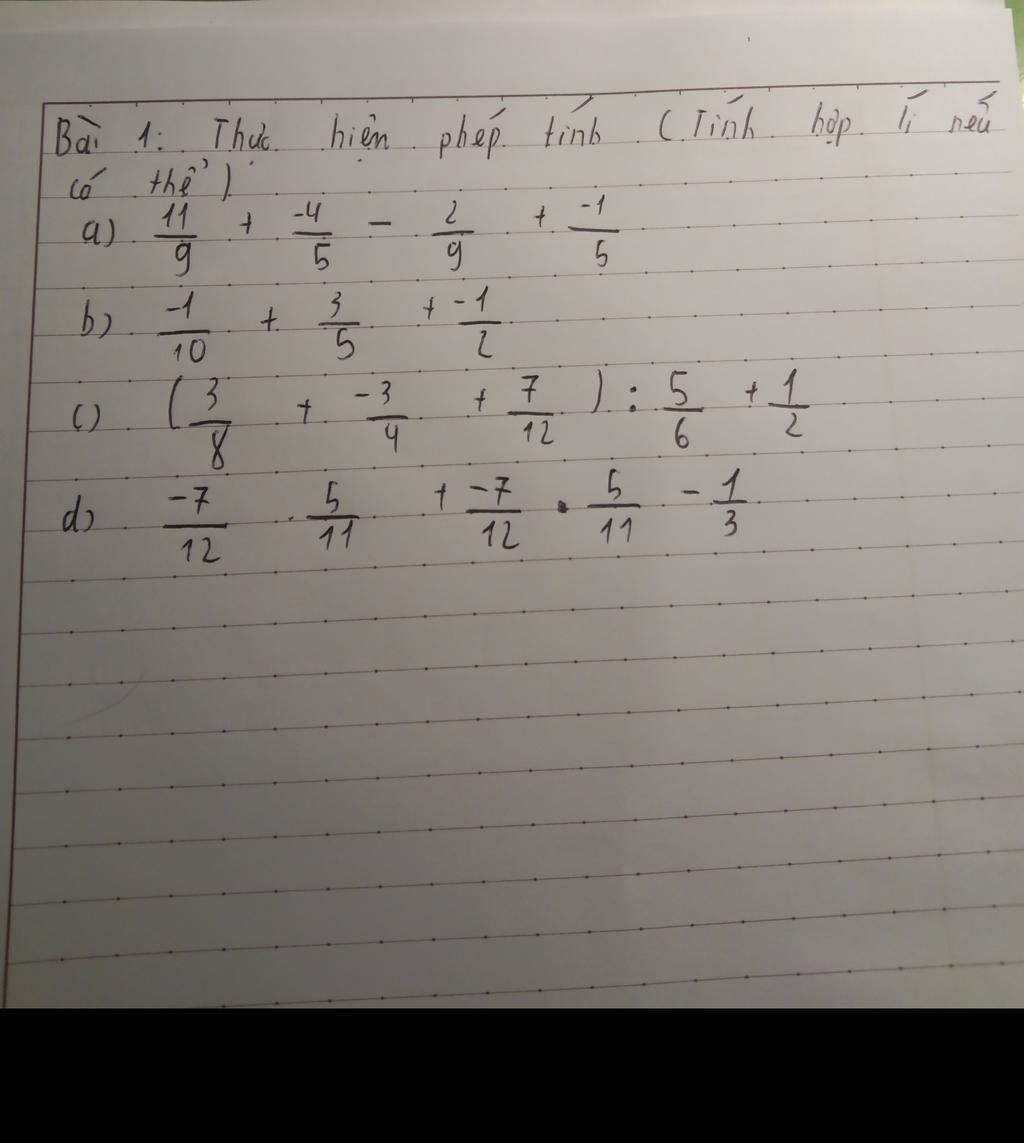 Bài 1: Thực hiện phép tính (Tính hợp lí nếu
có thể)
a) 11/9 + -4/5 - 2/9 + -1/5
b) -1/10 + 3/5 + -1/2
c) (3/8 + -3/4 + 7/12) : 5/6 + 1/2
d) -7/12 . 5/11 + -7/12 . 5/11 - 1/3